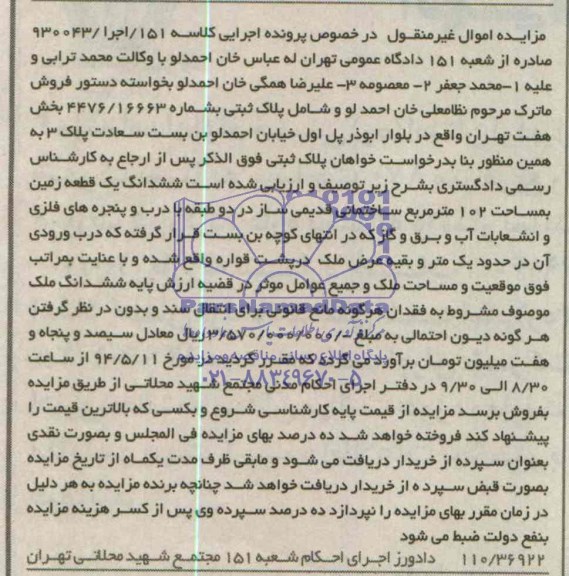 مزایـده اموال غیرمنقـول در خصوص پرونده اجرایی کلاسـه ۱۵۱/اجرا /۹۳۰۰۴۳
صادره از شعبه ۱۵۱ دادگاه عمومی تهران له عباس خان احمدلو با وکالت محمد ترابی و
علیه ۱-محمد جعفر ۲- معصومه ۳- علیرضا همگی خان احمدلو بخواسته دستور فروش
ماترک مرحوم نظامعلی خان احمد لو و شـامل پلاک ثبتی بشـماره ۴۴۷۶/۱۶۶۶۳ بخش
هفت تهـران واقع در بلوار ابوذر پل اول خیابان احمدلو بن بسـت سـعادت پلاک ۳ به
همین منظور بنا بدرخواسـت خواهان پلاک ثبتی فوق الذکر پس از ارجاع به کارشـناس
رسـمی دادگستری بشـرح زیر توصیف و ارزیابی شده اسـت ششدانگ یک قطعه زمین
بمساحت ۱۰۲ مترمربع سـاختمانی قدیمی سـاز در دو طبقه با درب و پنجره های فلزی
و انشـعابات آب و بـرق و گاز که در انتهای کوچه بن بسـت قـرار گرفته که درب ورودی
آن در حدود یک متر و بقیه عرض ملک درپشـت قواره واقع شـده و با عنایت بمراتب
فوق موقعیت و مساحت ملک و جمیع عوامل موثر در قضیه ارزش پایه ششـدانگ ملک
موصوف مشـروط به فقدان هرگونه مانع قانونی برای انتقال سند و بدون در نظر گرفتن
هـر گونه دیـون احتمالی به مبلغ -/۳/۵۷۰/۰۰۰/۰۰۰ ریال معادل سـیصد و پنجاه و
هفـت میلیون تومـان برآورد می گردد که مقـرر گردید در مورخ ۹۴/۵/۱۱ از سـاعت
۸/۳۰ الـی ۹/۳۰ در دفتـر اجرای احکام مدنی مجتمع شـهید محلاتـی از طریق مزایده
بفروش برسـد مزایده از قیمت پایه کارشناسـی شروع و بکسـی که بالاترین قیمت را
پیشـنهاد کند فروخته خواهد شـد ده درصد بهای مزایده فی المجلس و بصورت نقدی
بعنوان سـپرده از خریدار دریافت می شـود و مابقی ظرف مدت یکمـاه از تاریخ مزایده
بصورت قبض سپرد ه از خریدار دریافت خواهد شـد چنانچه برنده مزایده به هر دلیل
در زمان مقرر بهای مزایده را نپردازد ده درصد سـپرده وی پس از کسـر هزینه مزایده
بنفع دولت ضبط می شود
۱۱۰/۳۶۹۲۲ دادورز اجـرای احـکام شـعبه ۱۵۱ مجتمـع شـهید محلاتـی تهـران
ParsNamadData
پایگاه اطلاع رسانی مناقصه و مزایده
۰۲۱-۸۸۳۴۹۶۷۰-۵